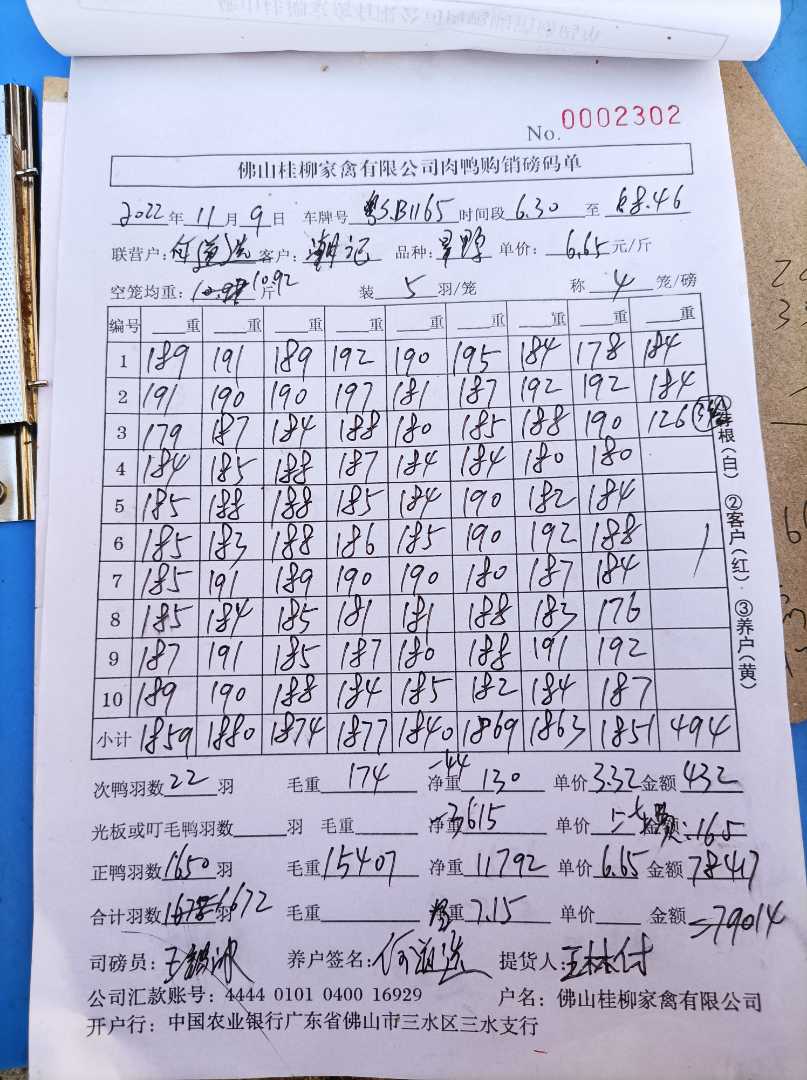 No. 0002302
佛山桂柳家禽有限公司肉鸭购销磅码单
2022年11月9日 车牌号 粤S.B1165 时间段 6.30 至 8.46
联营户: 何 客户: 潮记 品种: 单价: 6.65元/斤
空笼均重: 10.92斤 装 5 羽/笼 称 4 笼/磅
编号 重 重 重 重 重 重 重 重 重
1 189 191 189 192 190 195 184 178 184
2 191 190 190 197 181 187 192 192 184
3 179 187 184 188 180 185 188 190 126
4 184 185 188 187 184 184 180 180
5 185 188 188 185 184 190 182 184
6 185 183 188 186 185 190 192 188
7 185 191 189 190 190 180 187 184
8 185 184 185 181 181 188 183 176
9 187 191 185 187 180 188 191 192
10 189 190 188 184 185 182 184 187
小计 1859 1880 1874 1877 1840 1869 1863 1851 494
①存根(白) ②客户(红) ③养户(黄)
次鸭羽数 22 羽 毛重 174 -44 净重 130 单价 3.32 金额 432
光板或叮毛鸭羽数 羽 毛重 净重 -3615 单价 金额: 165
正鸭羽数 1650 羽 毛重 15407 净重 11792 单价 6.65 金额 78417
合计羽数 1672 羽 毛重 净重 7.15 单价 金额 =79014
司磅员: 王 养户签名: 何 提货人: 王林付
公司汇款账号: 4444 0101 0400 16929 户名: 佛山桂柳家禽有限公司
开户行: 中国农业银行广东省佛山市三水区三水支行